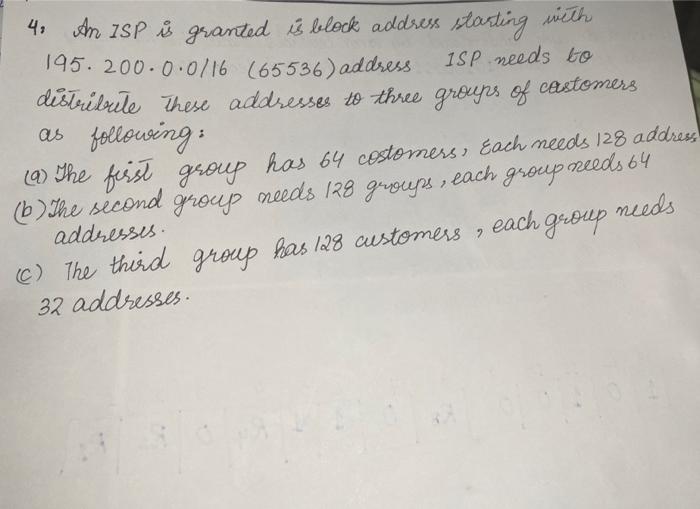 4, An ISP is granted is block address starting with
195. 200. 0. 0/16 (65536) address ISP needs to
distribute these addresses to three groups of castomers
as following:
(a) The first group has 64 costomers, Each needs 128 address
(b) The second group needs 128 groups, each group needs 64
addresses.
(c) The third group has 128 customers, each group needs
32 addresses.